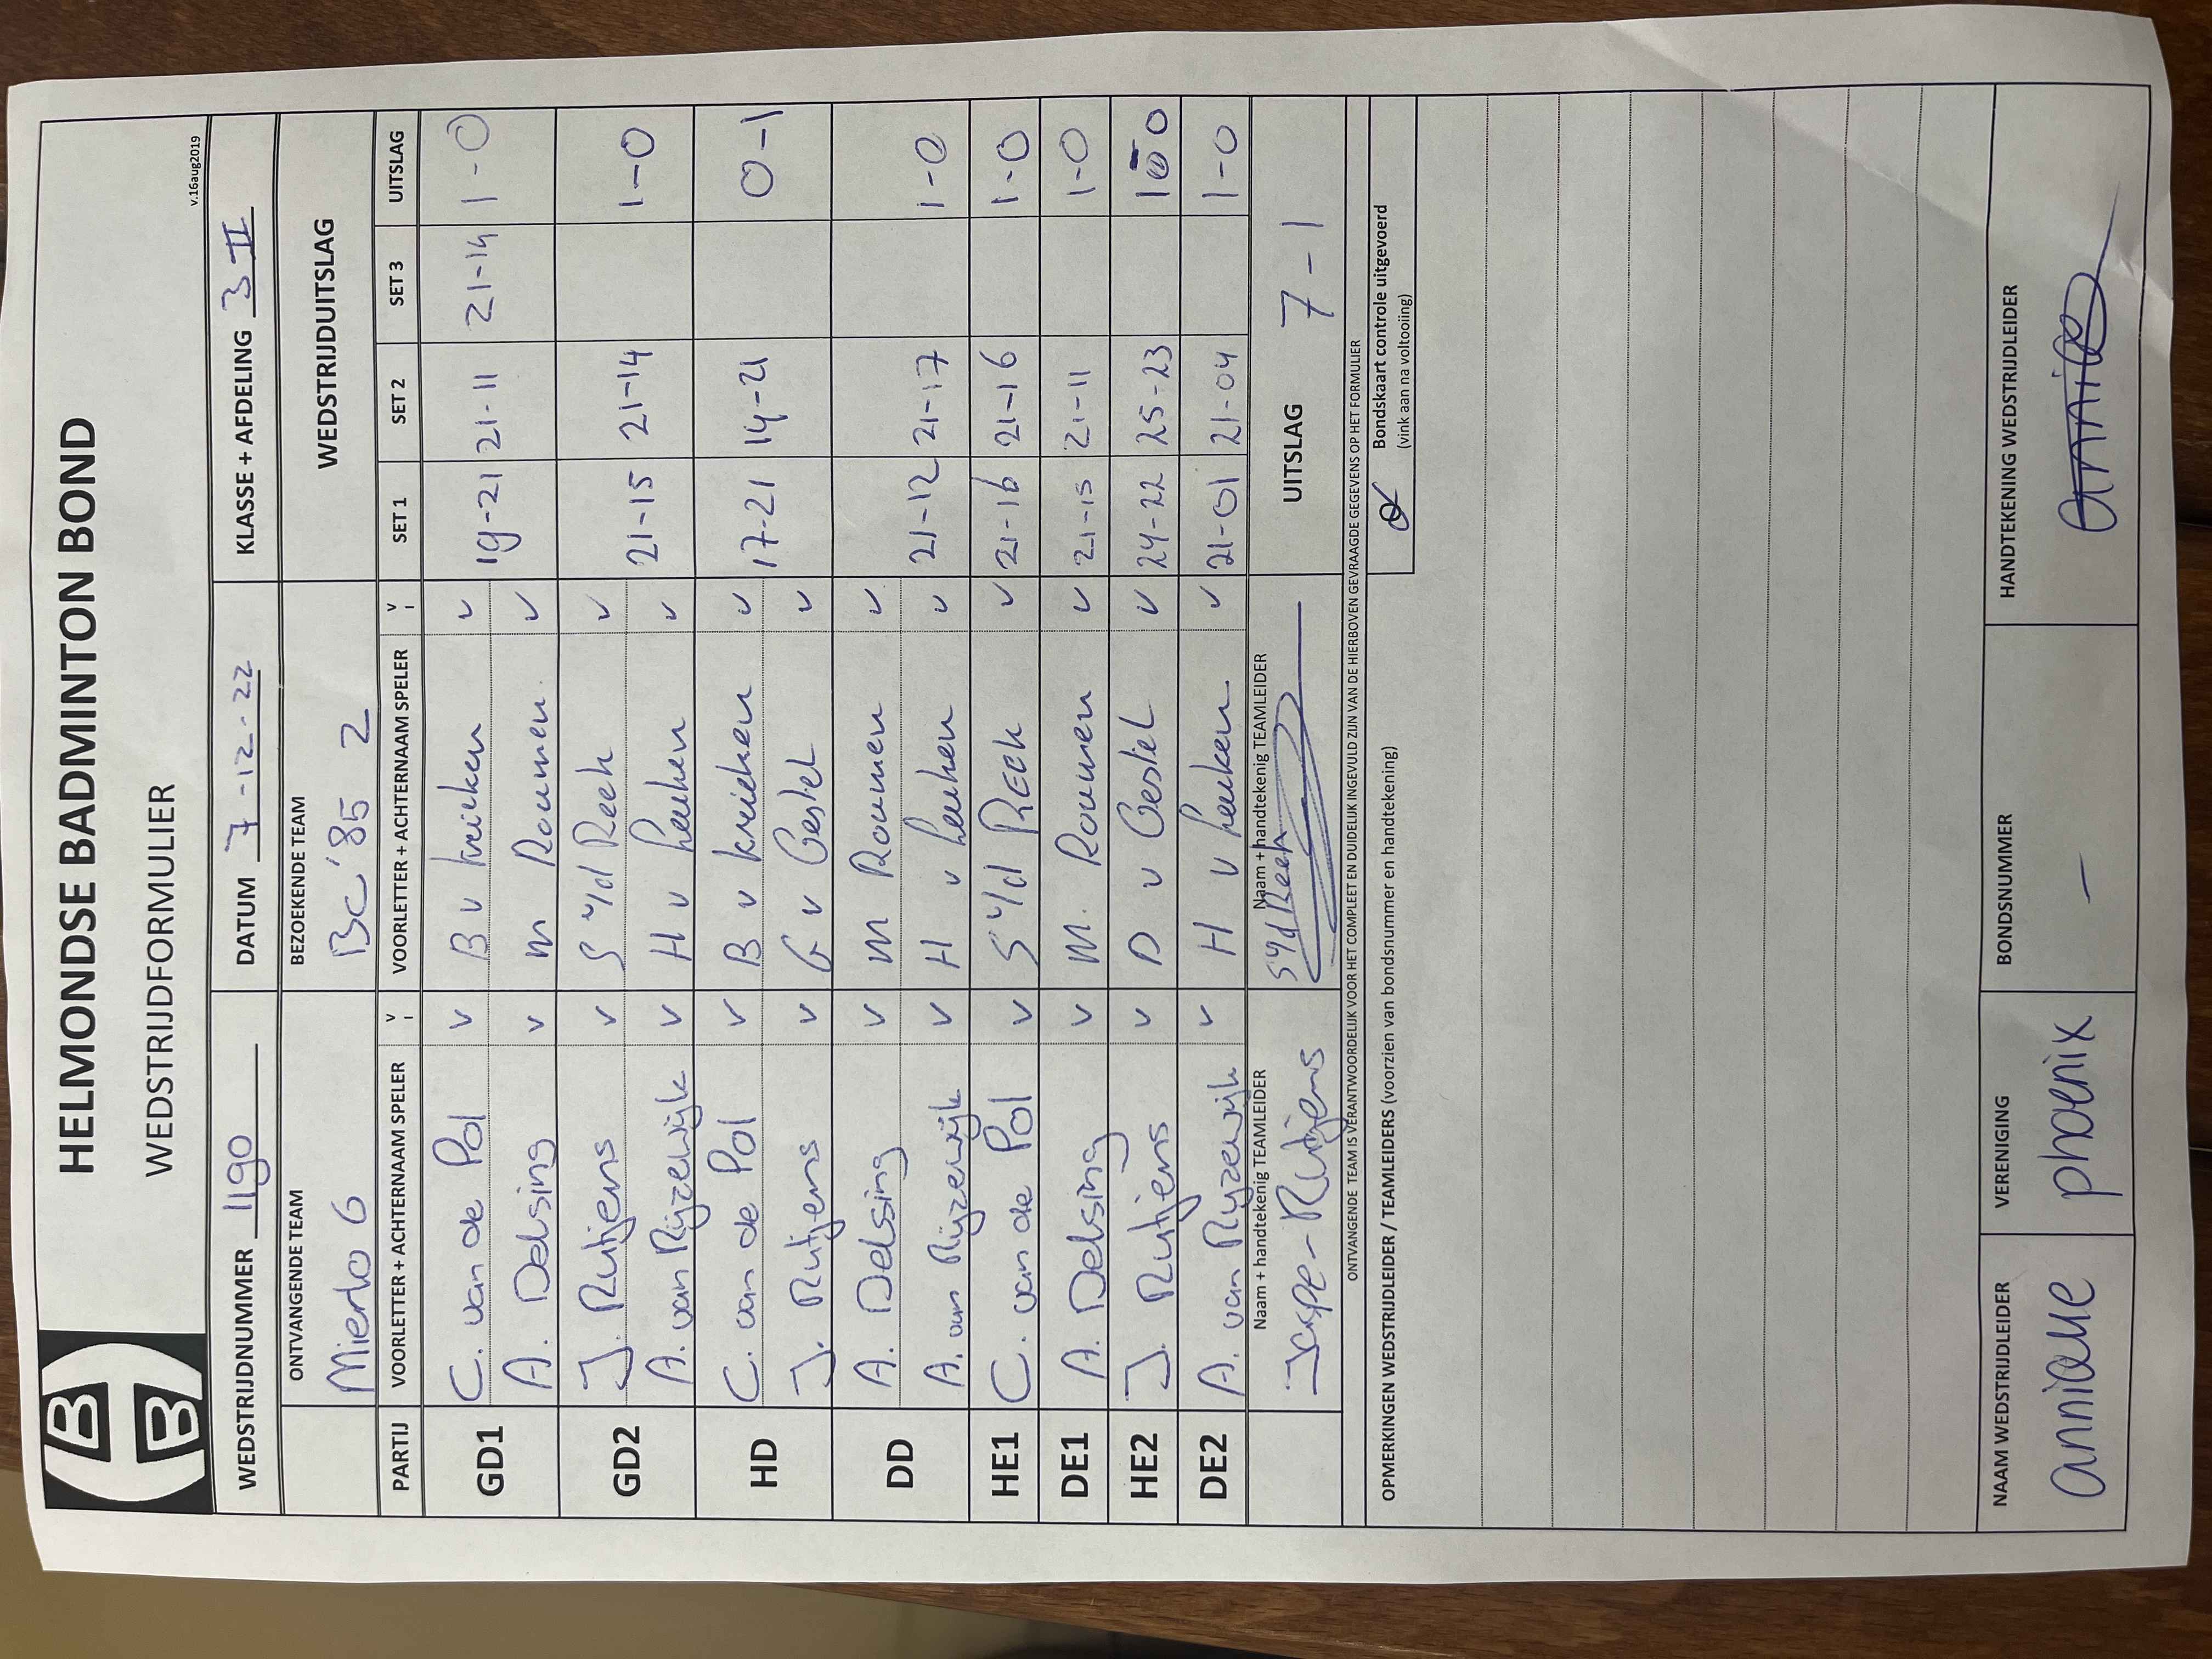 HELMONDSE BADMINTON BOND
WEDSTRIJDFORMULIER
v.16aug2019
WEDSTRIJDNUMMER 1190 DATUM 7-12-22 KLASSE + AFDELING 3 II
ONTVANGENDE TEAM BEZOEKENDE TEAM WEDSTRIJDUITSLAG
Mierlo 6 BC'85 2
PARTIJ VOORLETTER + ACHTERNAAM SPELER V VOORLETTER + ACHTERNAAM SPELER V SET 1 SET 2 SET 3 UITSLAG
GD1 C. van de Pol v B v krieken v 19-21 21-11 21-14 1-0
A. Delsing v M Roumen v
GD2 J. Rutjens v S vd Reek v 21-15 21-14 1-0
A. van Rijzewijk v H v Leuken v
HD C. van de Pol v B v krieken v 17-21 14-21 0-1
J. Rutjens v G v Gestel v
DD A. Delsing v M Roumen v
A. van Rijzewijk v H v Leuken v 21-12 21-17 1-0
HE1 C. van de Pol v S vd Reek v 21-16 21-16 1-0
DE1 A. Delsing v M. Roumen v 21-15 21-11 1-0
HE2 J. Rutjens v v Gestel v 24-22 25-23 1-0
DE2 A. van Ryzewijk v H v Leuken v 21-01 21-04 1-0
Naam + handtekenig TEAMLEIDER Naam + handtekenig TEAMLEIDER UITSLAG 7-1
Rutjens S vd Reek
ONTVANGENDE TEAM IS VERANTWOORDELIJK VOOR HET COMPLEET EN DUIDELIJK INGEVULD ZIJN VAN DE HIERBOVEN GEVRAAGDE GEGEVENS OP HET FORMULIER
OPMERKINGEN WEDSTRIJDLEIDER / TEAMLEIDERS (voorzien van bondsnummer en handtekening)
Bondskaart controle uitgevoerd
(vink aan na voltooiing)
NAAM WEDSTRIJDLEIDER VERENIGING BONDSNUMMER HANDTEKENING WEDSTRIJDLEIDER
phoenix -